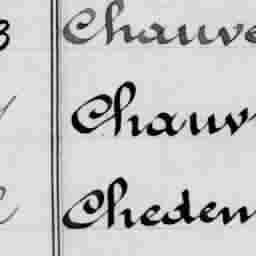 3 Chauve
Chauv
Chedem